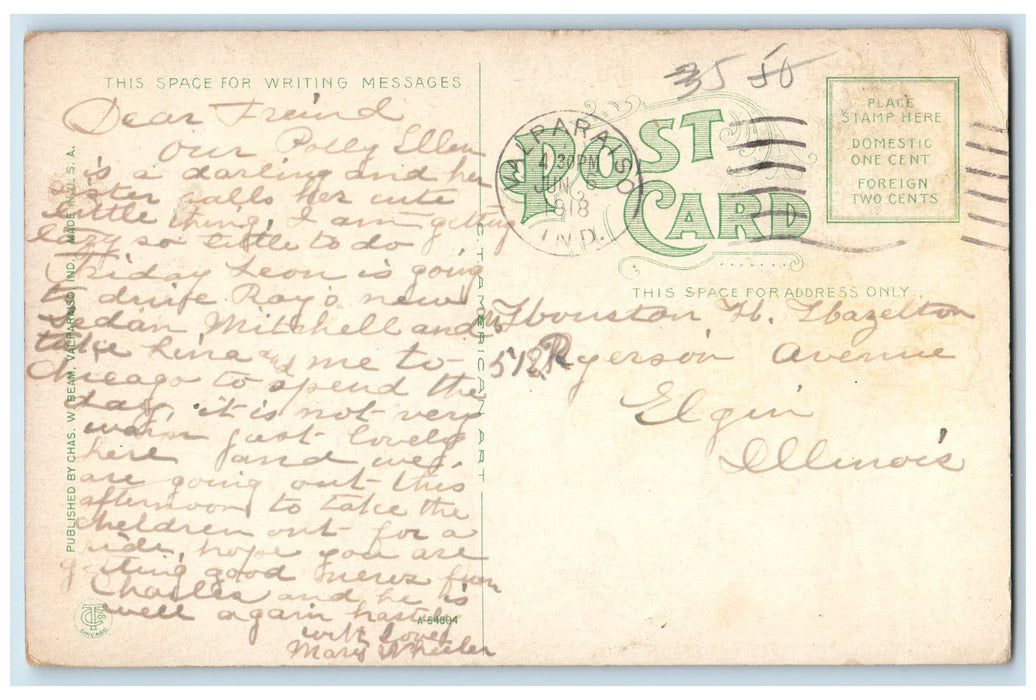 THIS SPACE FOR WRITING MESSAGES
Dear Freind
our Polly Ellen
is a darling and her
sister calls her cute
little thing, I am getting
lazy so little to do
Friday Leon is going
to drive Ray's new
Sedan Mitchell and
take Lina and me to
Chicago to spend the
day, it is not very
warm just lovely
here and we
are going out this
afternoon to take the
children out for a
ride, hope you are
getting good news from
Charles and he is
well again hastily
with love
Mary Wheeler
PUBLISHED BY CHAS. W. BEAM, VALPARAISO, IND. MADE IN U. S. A.
CTCO
CHICAGO
A-54604
C. T. AMERICAN ART
35 50
POST CARD
VALPARAISO
4 30PM
JUN 6
1918
IND.
PLACE
STAMP HERE
DOMESTIC
ONE CENT
FOREIGN
TWO CENTS
THIS SPACE FOR ADDRESS ONLY
Houston, H. Hazelton
512 Ryerson Avenue
Elgin
Illinois